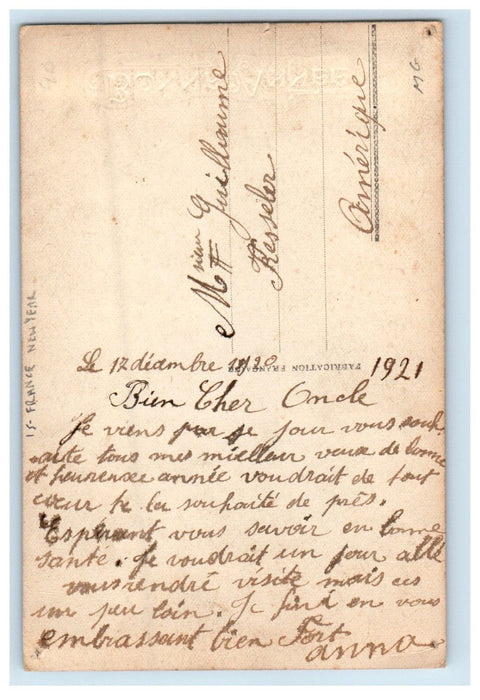 MG
Amérique
Msieur Guilleaume
Kesseler
15- FRANCE NEW YEAR
FABRICATION FRANÇAISE
Le 17 décembre 1920
1921
Bien Cher Oncle
Je viens par se jour vous souh
aite tous mes mielleur veux de bonne
et heureuse année voudrait de tout
cœur te la souhaité de près.
Espérant vous savoir en bonne
santé. Je voudrait un jour allé
vous rendré visite mais ces
un peu loin. Je finit en vous
embrassant bien Fort
anna